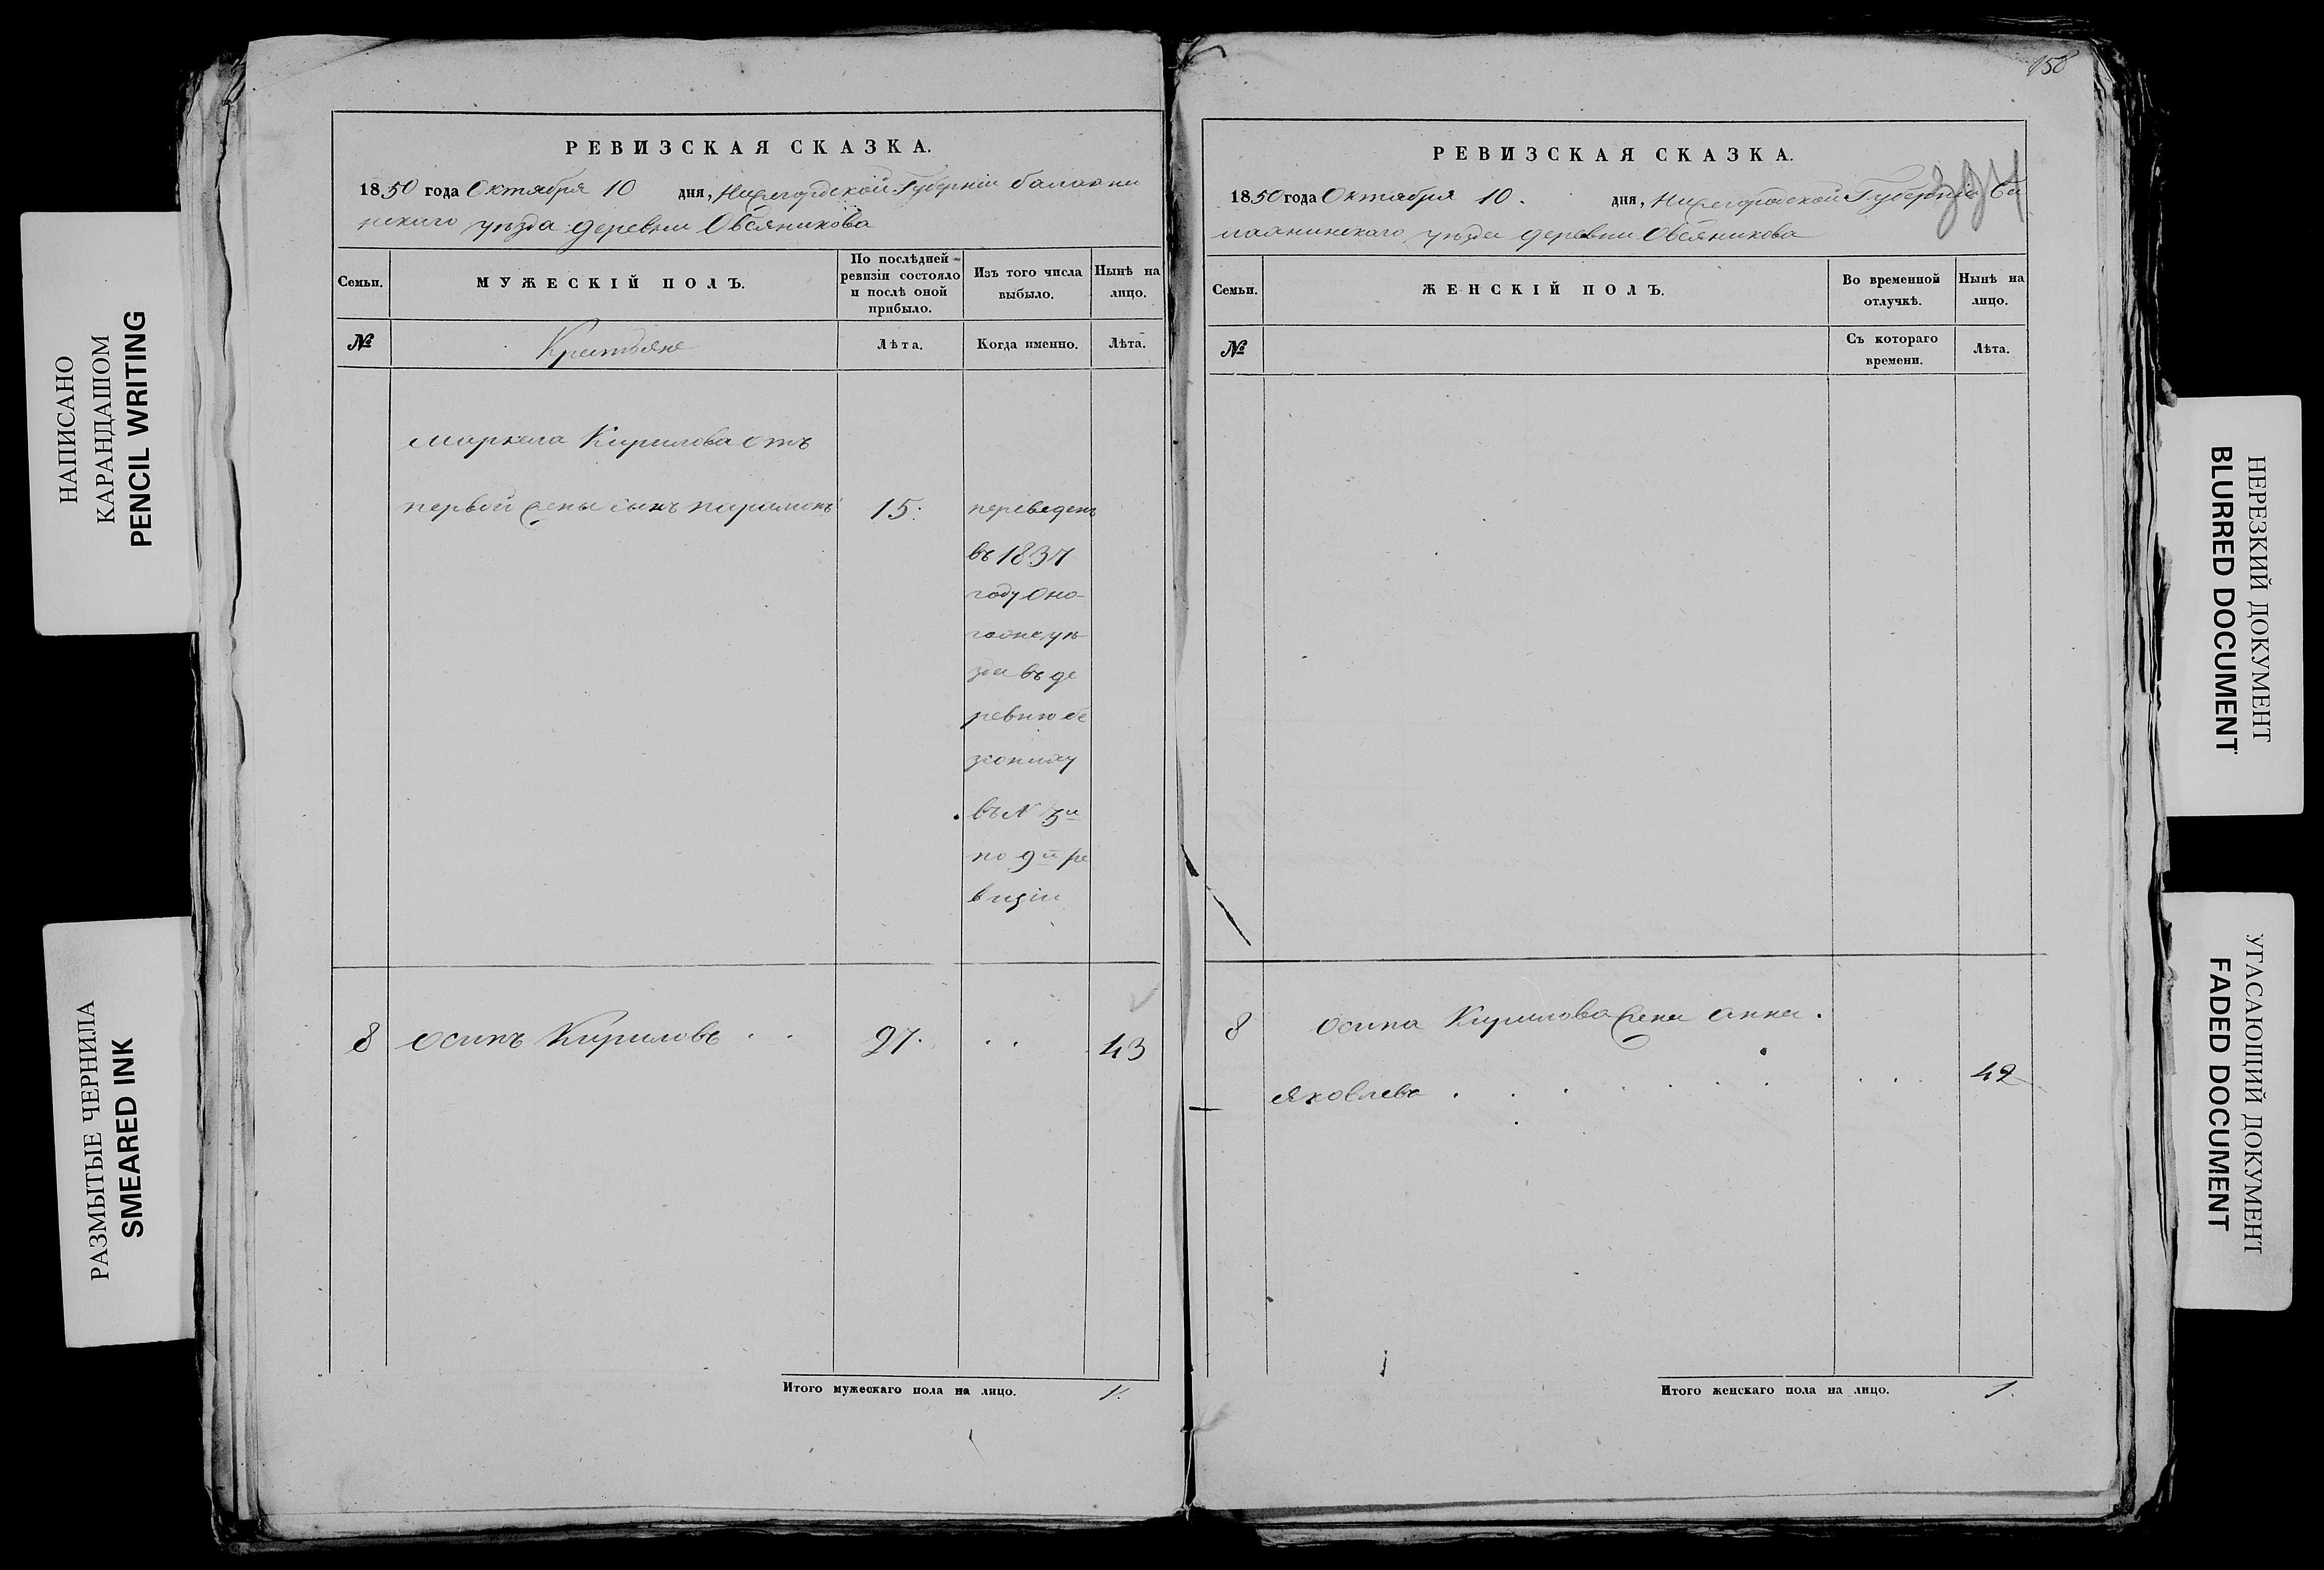 НАПИСАНО
КАРАНДАШОМ
PENCIL WRITING
РАЗМЫТЫЕ ЧЕРНИЛА
SMEARED INK
РЕВИЗСКАЯ СКАЗКА.
1850 года Октября 10 дня, Нижегородской Губерніи балахни
нскаго уѣзда деревни Овсяникова
Семьи.
МУЖЕСКІЙ ПОЛЪ.
По послѣдней
ревизіи состояло
и послѣ оной
прибыло.
Изъ того числа
выбыло.
Нынѣ на
лицо.
№
Крестьяне
Лѣта.
Когда именно.
Лѣта.
Маркела Кирилова отъ
первой жены сынъ парамонъ 15. переведенъ
въ 1837
году
уѣ
зда въ де
ревню
въ N
по 9й ре
визіи
8 Осипъ Кириловъ . . 27. . . 43
Итого мужескаго пола на лицо. 1.
158
РЕВИЗСКАЯ СКАЗКА.
1850 года Октября 10. дня, Нижегородской Губерніи Ба
лахнинскаго уѣзда деревни Овсяникова
Семьи.
ЖЕНСКІЙ ПОЛЪ.
Во временной
отлучкѣ.
Нынѣ на
лицо.
№
Съ котораго
времени.
Лѣта.
8 Осипа Кирилова жена Анна
Яковлева . . . . . . . . . 42
Итого женскаго пола на лицо. 1.
НЕРЕЗКИЙ ДОКУМЕНТ
BLURRED DOCUMENT
УГАСАЮЩИЙ ДОКУМЕНТ
FADED DOCUMENT